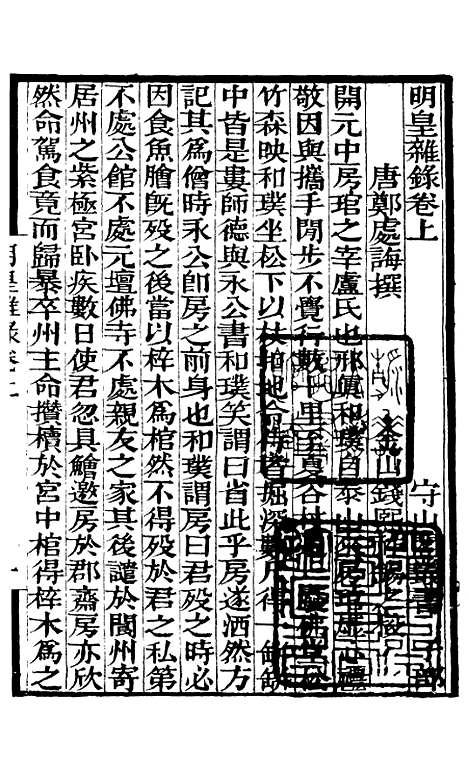 明皇雜錄卷上　守山閣叢書 子部
唐鄭處誨撰　金山錢熙祚錫之校
開元中房琯之宰盧氏也邢真和璞自泰山來房琯虛心禮
敬因與攜手閑步不覺行數十里至夏谷村
竹森映和璞坐松下以杖扣地令侍者掘深數尺得一缾缾
中皆是婁師德與永公書和璞笑謂曰省此乎房遂洒然方
記其為僧時永公卽房之前身也和璞謂房曰君歿之時必
因食魚膾旣歿之後當以梓木為棺然不得歿於君之私第
不處公館不處元壇佛寺不處親友之家其後譴於閬州寄
居州之紫極宮臥疾數日使君忽具鱠邀房於郡齋房亦欣
然命駕食竟而歸暴卒州主命攢櫝於宮中棺得梓木為之
明皇雜錄卷上　一